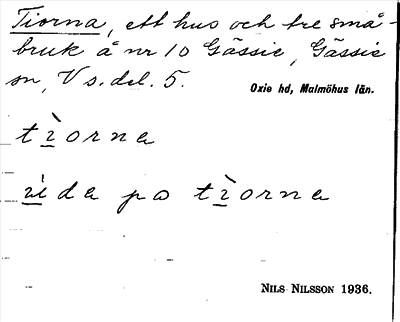 Tiorna, ett hus och tre små-
bruk å nr 10 Gässie, Gässie
sn, V s. del. 5.
Oxie hd, Malmöhus län.
tìorna
vìda pa tìorna
NILS NILSSON 1936.